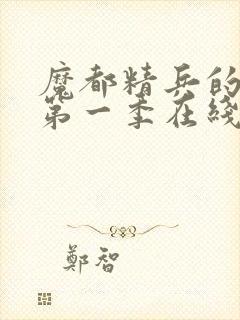 魔都精兵的
第一季在綫
鄭智